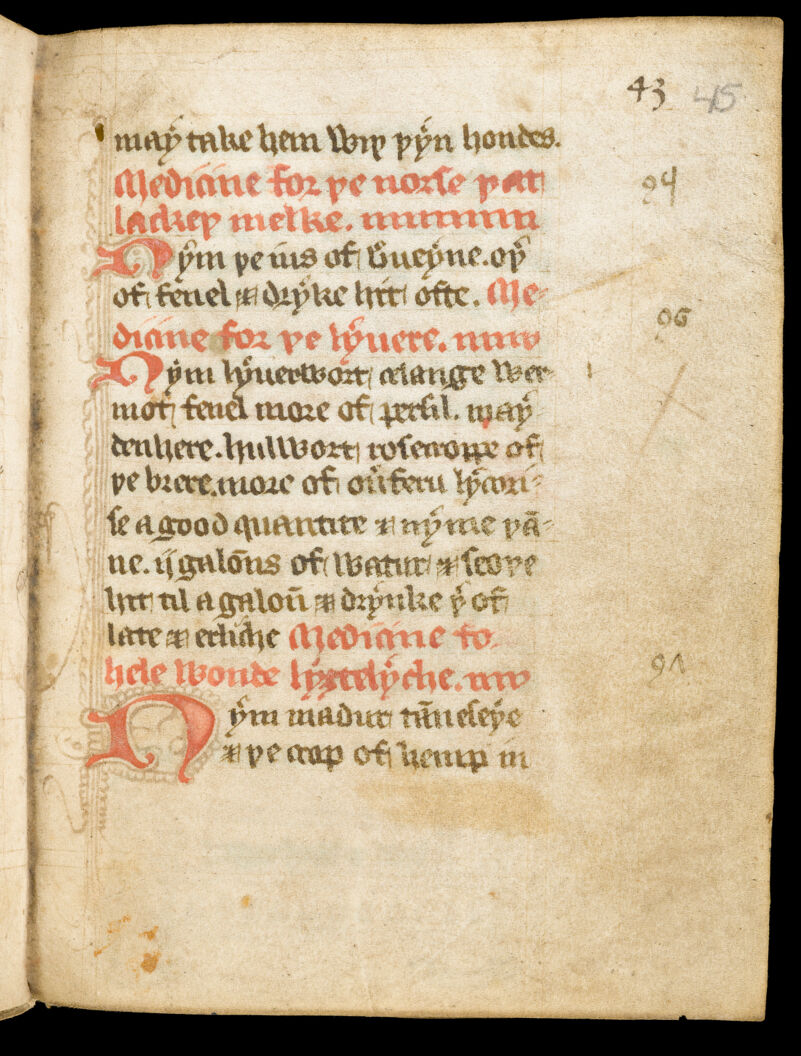 43 45
may take hem wiþ þyn hondes.
Medicine for þe norse þat 94
lackeþ melke.
Nym þe ius of ofþ
of fenel & drynke hit ofte. Me-
dicine for þe lyuere. 96
Nym lyuerwort langge wer-
mot fenel more of persil. may
denhere. hulwort rosecroppe of
þe brere. more of lycori-
se a good quantite & nyme þā-
ne. ij galōns of watur & seoþe
hit til a galoū & drynke þ of
late & erliche Medicine to
hele wonde lyȝtelyche. 91
Nym madur
& þe crop of hemp in